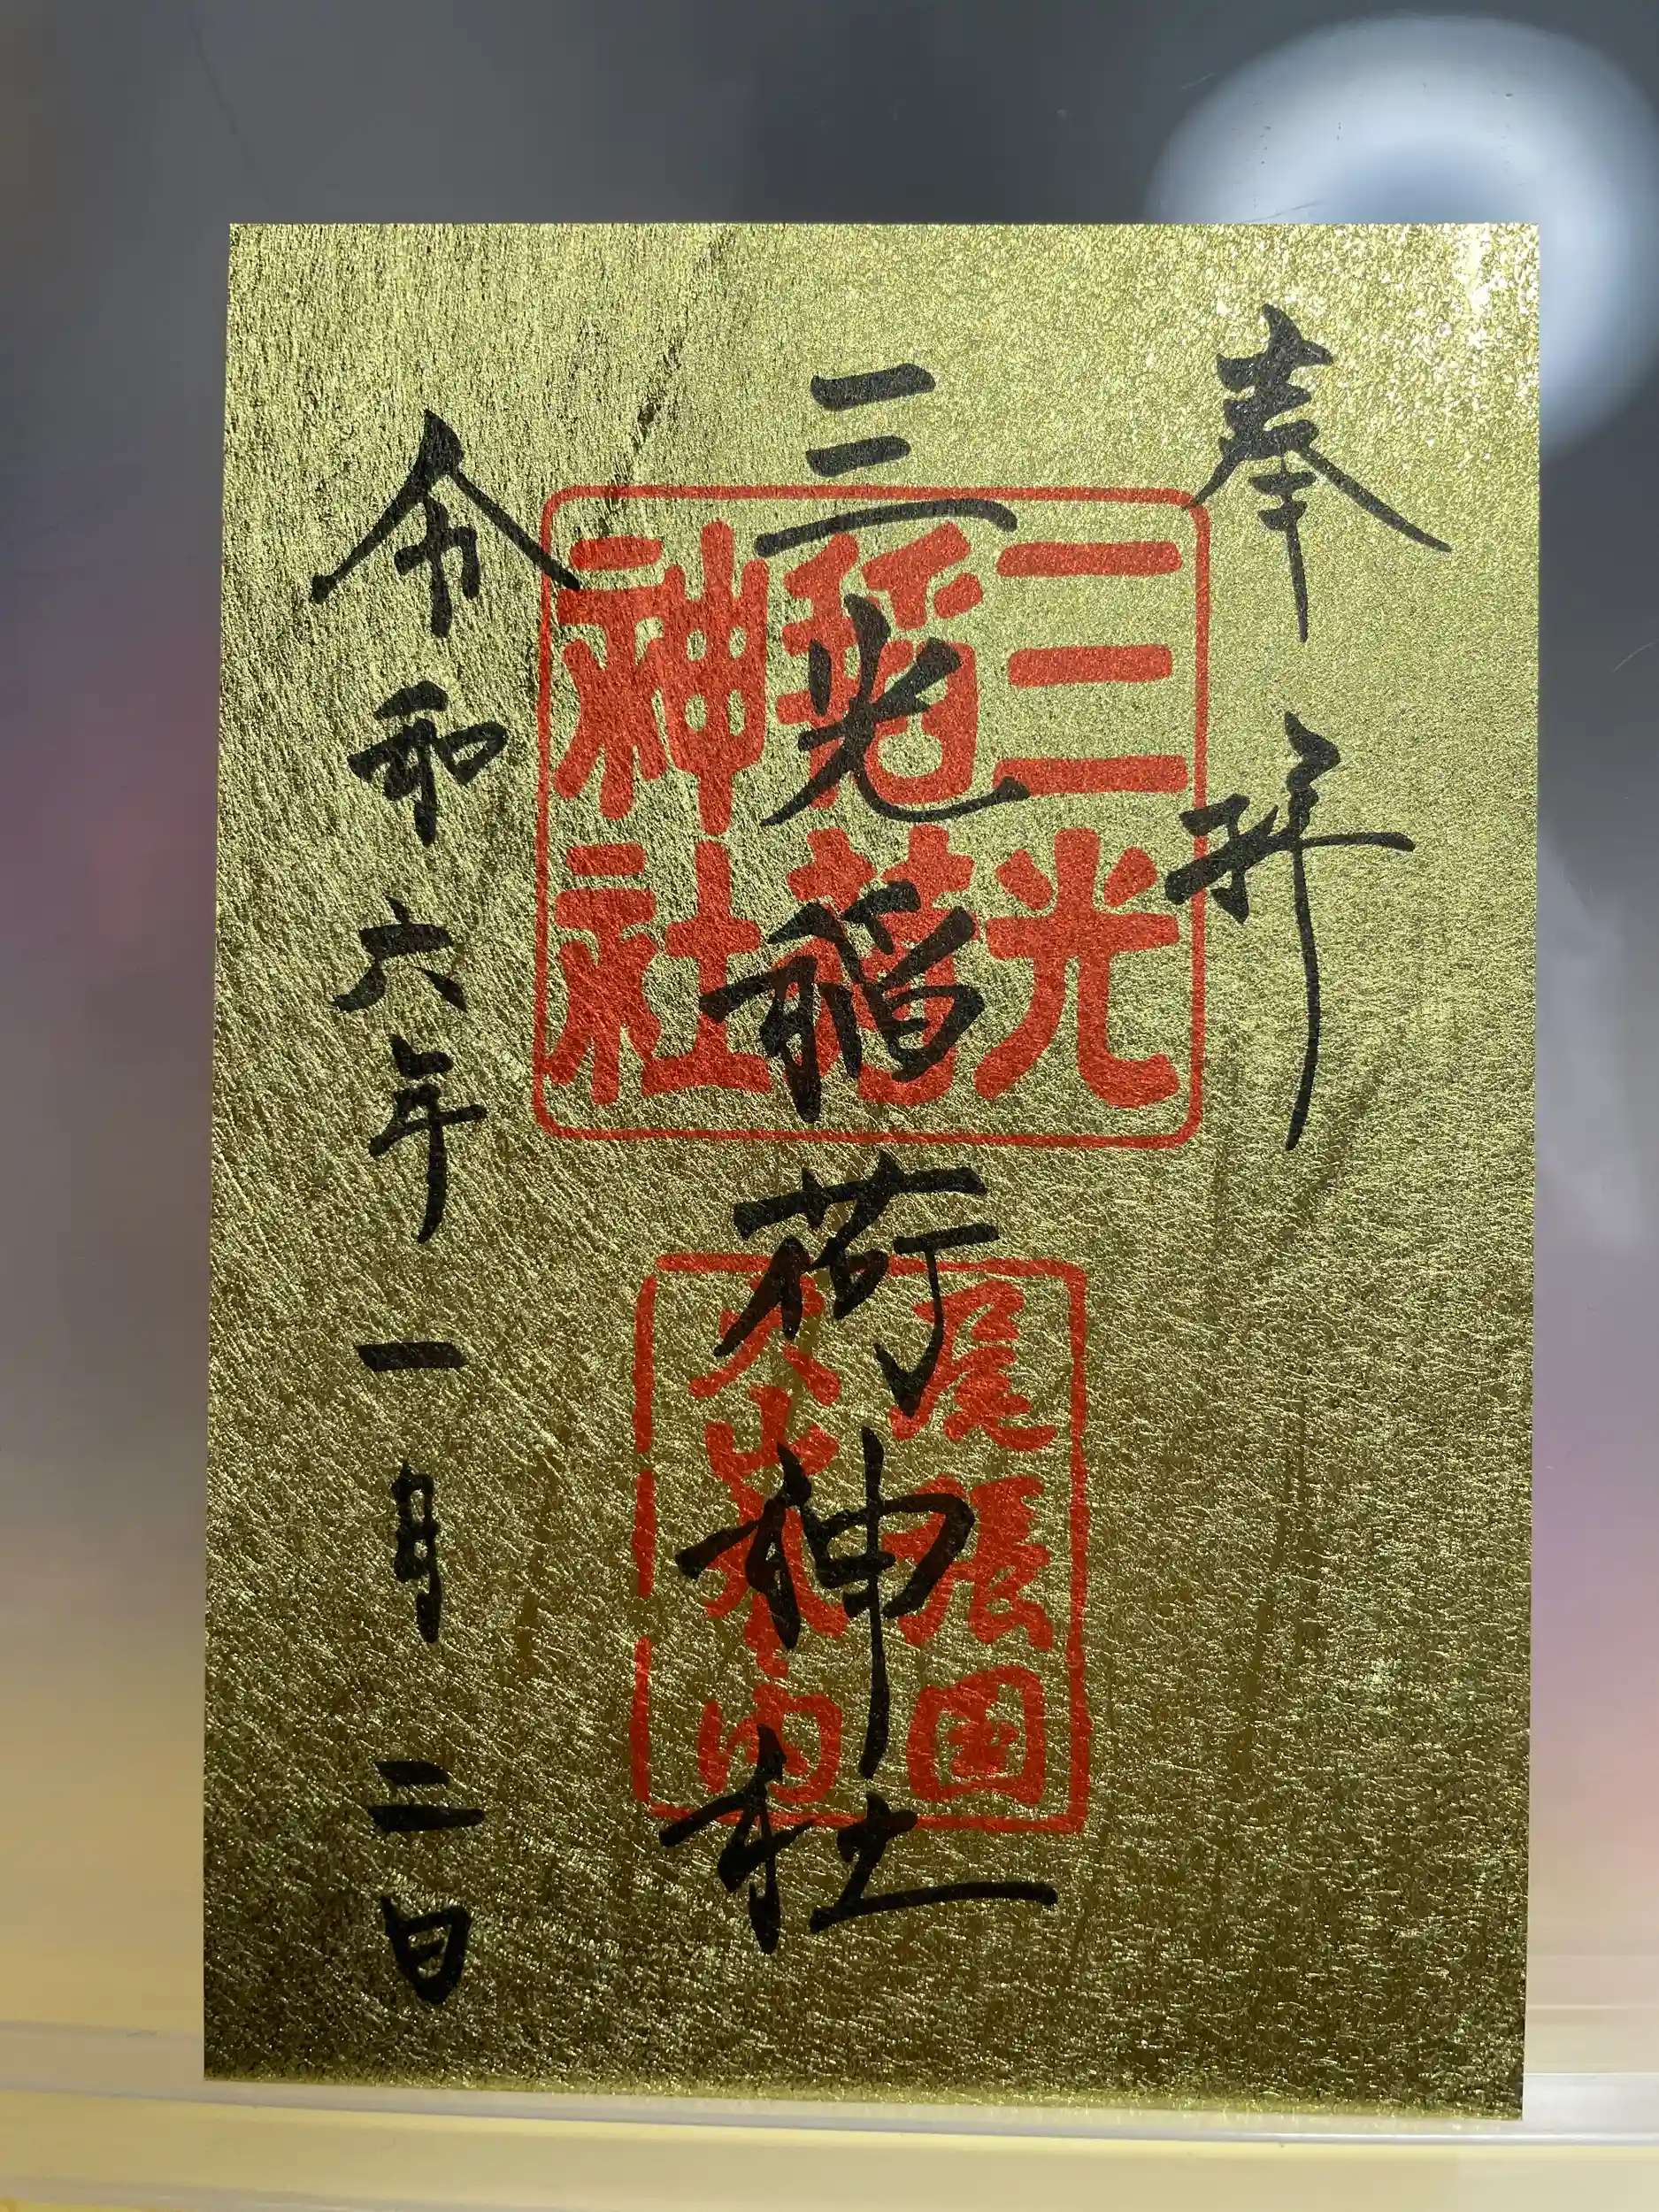 奉拝
三光稲荷神社
令和六年一月二日
三光
稲荷
神社
尾張国
犬山城内